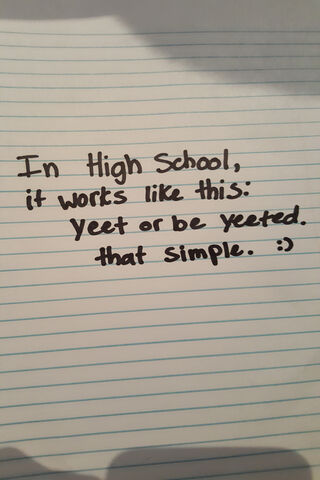 In High School,
it works like this:
Yeet or be yeeted.
that simple. :)